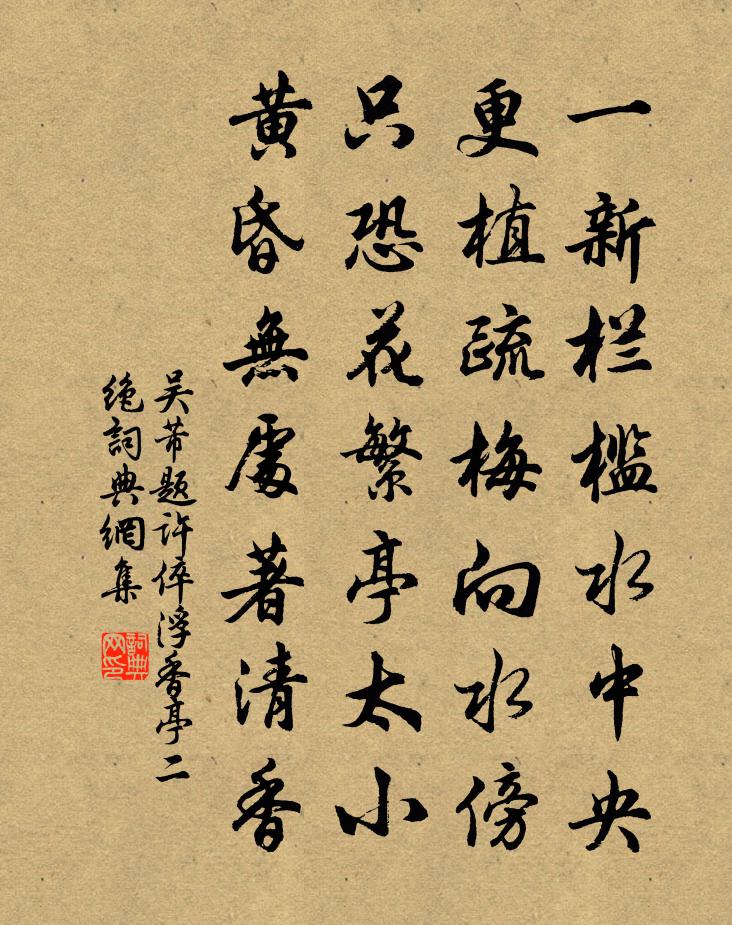 一新栏槛水中央
更植疏梅向水傍
只恐花繁亭太小
黄昏無處著清香
吴芾题许倅浮香亭二
绝詞典網集
詞典
网印